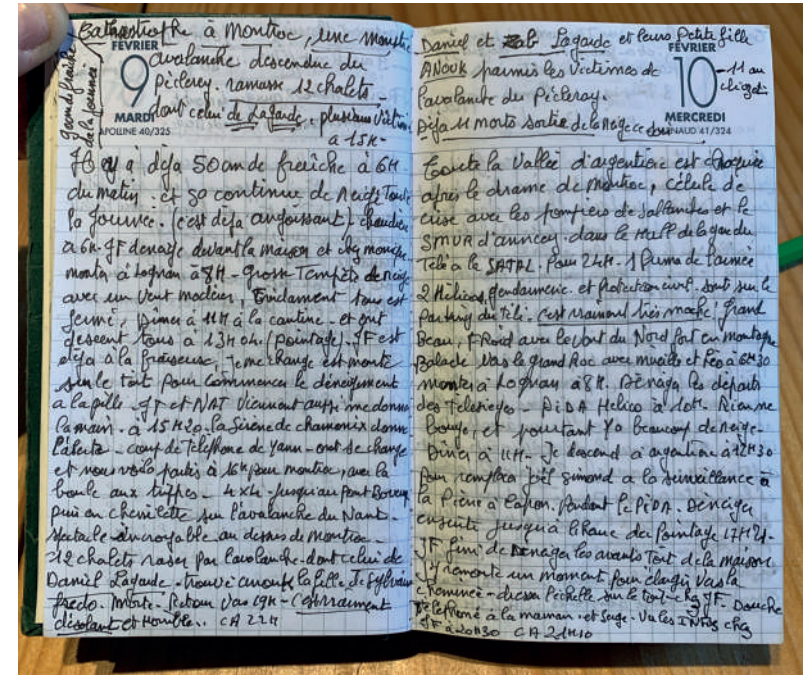 Catastrophe à Montroc, une monstre
grande fraîche de la journée
FÉVRIER
9
MARDI
APOLLINE 40/325
avalanche descendue du
Pècleray. ramasse 12 chalets -
dont celui de Lagarde. plusieurs victimes
à 15H-
Il y a déja 50 cm de fraiche à 6H
du matin. et so continue de neiger Toute
la Journée. (c'est déja angoissant) chaudière
à 6H. JF denaige devant la maison et chez monique.
monter à Lognan à 8H - Grosse Tempête de neige
avec un vent modéré, Evidament tous est
fermé, Dinez à 11H à la cantine. et ont
descent tous à 13H (pointage). JF est
déja à la fraiseuse, Je me change est monté
sur le toit pour commencer le dénégement
a la pelle - JF et NAT Viennent aussi me donner
la main. à 15H20 la Sirène de chamonix donne
l'alerte - coup de Téléphone de Yann - ont se change
et nous voila partis à 16H pour montroc, avec la
boule aux trippes - 4x4 - jusqu'au pont
puis en chenilette sur l'avalanche du Nant -
spectacle incroyable au dessus de Montroc -
12 chalets raser par l'avalanche - dont celui de
Daniel Lagarde - trouvé anouk la fille de Sylvain
fredo. morte - Retour vers 19H - C'est vraiment
désolant et Horrible.. CA 22H
Daniel et Lagarde et leurs Petite fille
FÉVRIER
10
MERCREDI
ARNAUD 41/324
ANOUK parmis les Victimes de
- 11 au
l'avalanche du Pècleray.
Déja 11 morts sortie de la neige ce soir
Toute la Vallée d'argentière est choquée
après le drame de montroc, célule de
crise avec les pompiers de Sallanches et le
SMUR d'annecy. dans le Hall de la gare du
Télé a la SATAL. Pour 24H - 1 Puma de l'armée
2 Hélicos, gendarmerie. et Protection civil. sont sur le
parking du Télé. c'est vraiment très moche, grand
Beau, froid avec le vent du Nord fort en montagne
Balade vers le grand Roc avec mireille et Léo à 6H30
monter à Lognan à 8H. Dénéga les départs
des Télésièges - PIDA Hélico à 10H. Rien ne
bouge, et pourtant Yo beaucoup de neige -
Diner à 11H - Je descend à argentière à 12H30
Pour remplacer Joël Simond a la surveillance à
la Pierre à Lapon. Pendant le PIDA. Déneiger
ensuite Jusqu'à l'Heure du Pointage 17H
JF fini de Dénéger les avants Toit de la maison
J'y remonte un moment pour élargir vers la
cheminée - dresser l'échelle sur le toit - chez JF - Douche
Téléphoné à la maman - et Serge - Vu les INFOS chez
JF à 20H30 CA 21H10